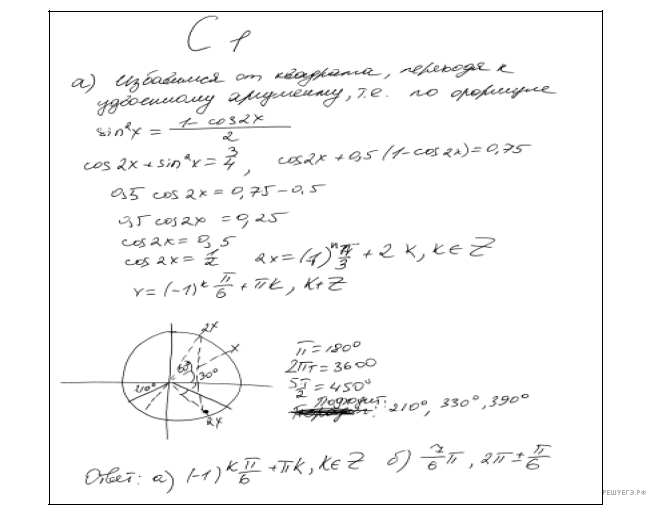 C 1
а) Избавимся от квадрата, переходя к
удвоенному аргументу, т.е. по формуле
sin²x = (1 - cos2x)/2
cos 2x + sin²x = 3/4, cos2x + 0,5 (1-cos2x) = 0,75
0,5 cos 2x = 0,75 - 0,5
0,5 cos2x = 0,25
cos 2x = 0,5
cos 2x = 1/2 2x = (-1)ⁿ π/3 + 2 k, k ∈ Z
x = (-1)ᵏ π/6 + πk, k ∈ Z
2x
x
60°
30°
210°
2x
π = 180°
2π = 3600
5π/2 = 450°
Подходит: 210°, 330°, 390°
Ответ: а) (-1)ᵏ π/6 + πk, k ∈ Z б) 7/6 π, 2π ± π/6
РЕШУЕГЭ.РФ